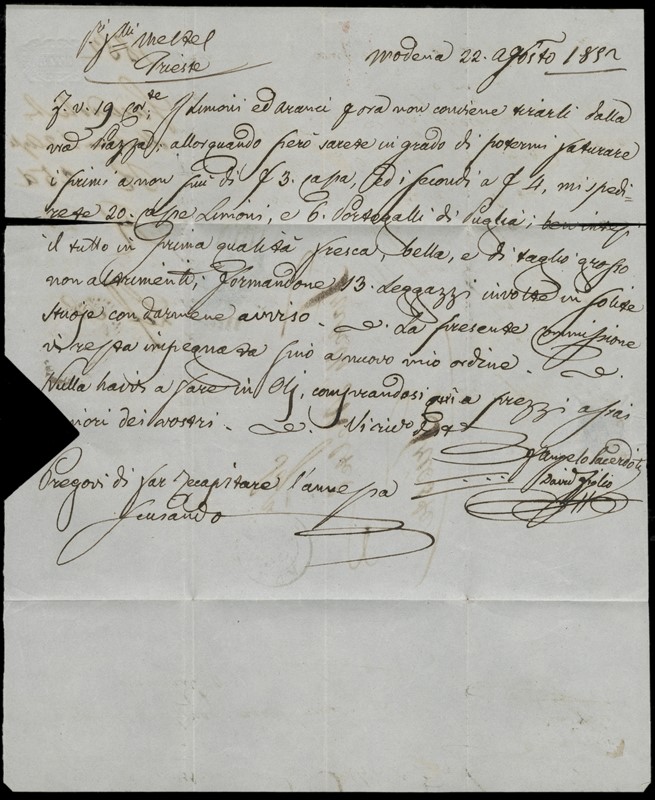 Fr̄i Meltel
Trieste
Modena 22. Agosto 1852
19 Corte Limoni ed aranci p ora non conviene tirarli dalla
piazza; allorquando però sarete in grado di potermi fatturare
i primi a non più di f 3. cassa, ed i secondi a f 4, mi spedi-
rete 20. casse Limoni, e 6. Portogalli di Puglia;
il tutto in prima qualità fresca, bella, e di taglio grosso
non altrimenti, formandone 13. Leggazzi involte in solite
stuoje con darmene avviso. La presente commissione
vi resta impegnata sino a nuovo mio ordine.
Nulla havvi a fare in Olj, comprandosi quì a prezzi assai
minori dei vostri. Vi riverisco
Angelo Sacerdoti
David figlio
Pregovi di far recapitare l'annessa
scusando